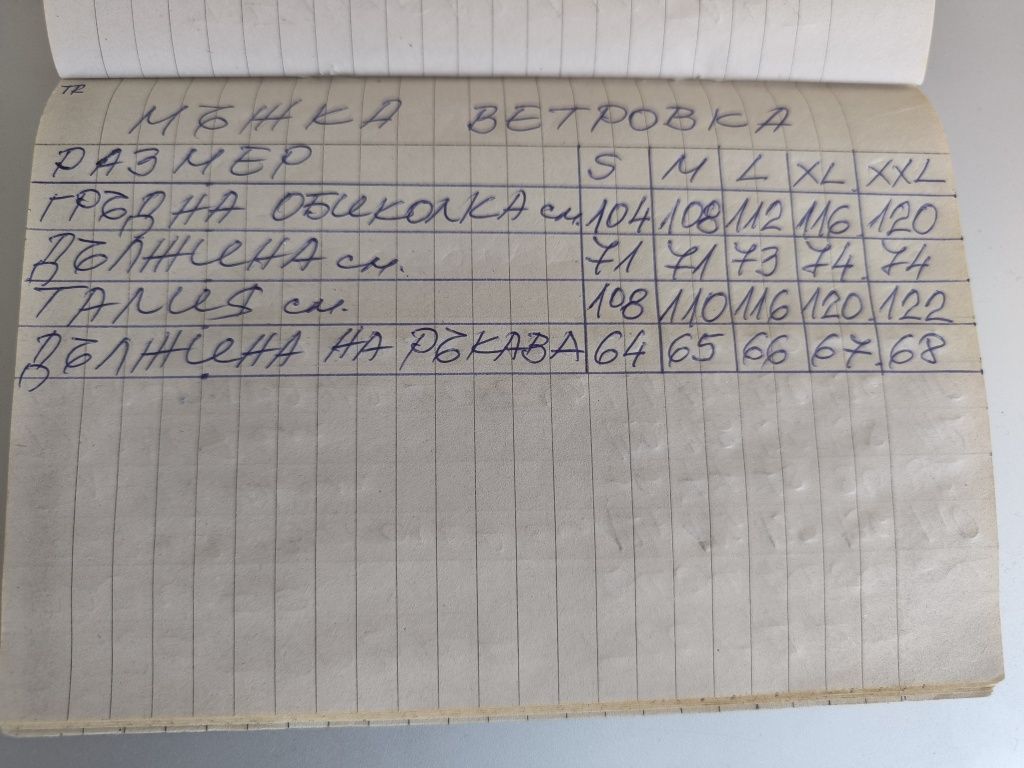 МЪЖКА ВЕТРОВКА
РАЗМЕР S M L XL XXL
ГРЪДНА ОБИКОЛКА см. 104 108 112 116 120
ДЪЛЖИНА см. 71 71 73 74 74
ТАЛИЯ см. 108 110 116 120 122
ДЪЛЖИНА НА РЪКАВА 64 65 66 67 68